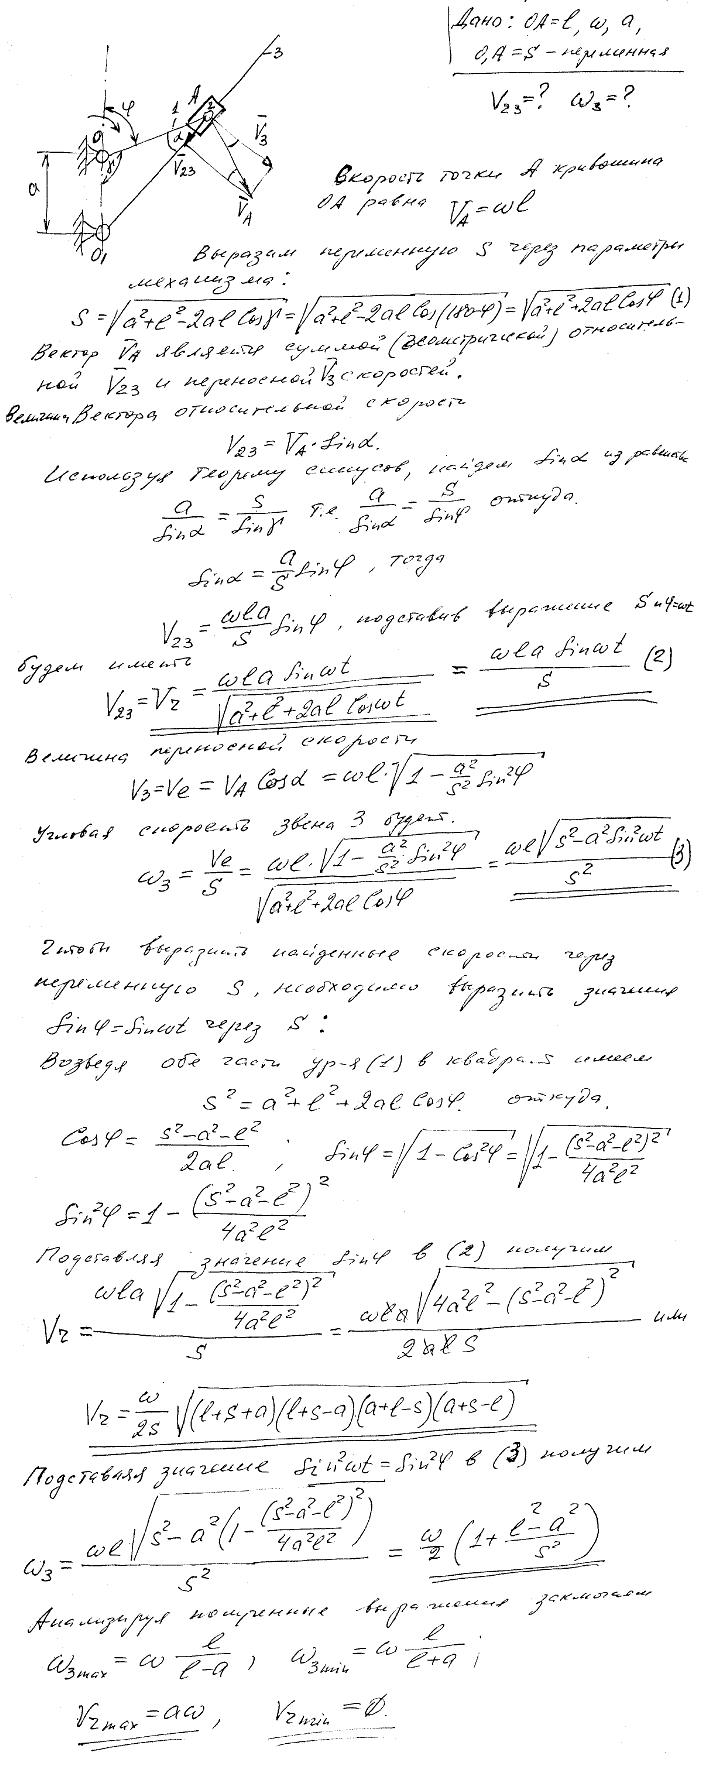 Дано: OA=l, ω, a,
O₁A=S – переменная
V₂₃=? ω₃=?
3
φ
1
A
2
α
O
γ
V̄₂₃
V̄₃
V̄_A
a
O₁
Скорость точки A кривошипа
OA равна V_A=ωl
Выразим переменную S через параметры
механизма:
S=√(a²+l²-2al Cosγ)=√(a²+l²-2al Cos(180-φ))=√(a²+l²+2al Cosφ) (1)
Вектор V̄_A является суммой (геометрической) относитель-
ной V̄₂₃ и переносной V̄₃ скоростей.
Величина Вектора относительной скорости
V₂₃=V_A·Sinα.
Используя теорему синусов, найдем Sinα из равенства
a/Sinα=S/Sinγ т.е. a/Sinα=S/Sinφ откуда.
Sinα=a/S Sinφ, тогда
V₂₃=ωla/S Sinφ, подставив выражение S и φ=ωt
будем иметь
V₂₃=Vr=ωla Sinωt/√(a²+l²+2al Cosωt) = ωla Sinωt/S (2)
Величина переносной скорости
V₃=Ve=V_A Cosα=ωl·√(1-a²/S² Sin²φ)
Угловая скорость звена 3 будет.
ω₃=Ve/S=ωl·√(1-a²/S² Sin²φ)/√(a²+l²+2al Cosφ)=ωl√(S²-a²Sin²ωt)/S² (3)
Чтобы выразить найденные скорости через
переменную S, необходимо выразить значения
Sinφ=Sinωt через S:
Возведя обе части ур-я (1) в квадрат имеем
S²=a²+l²+2al Cosφ. откуда.
Cosφ=(S²-a²-l²)/2al. , Sinφ=√(1-Cos²φ)=√(1-(S²-a²-l²)²/4a²l²)
Sin²φ=1-(S²-a²-l²)²/4a²l²
Подставляя значение Sinφ в (2) получим
Vr=ωla√(1-(S²-a²-l²)²/4a²l²)/S=ωla√(4a²l²-(S²-a²-l²)²)/2alS или
Vr=ω/2S √((l+S+a)(l+S-a)(a+l-S)(a+S-l))
Подставляя значение Sin²ωt=Sin²φ в (3) получим
ω₃=ωl√(S²-a²(1-(S²-a²-l²)²/4a²l²))/S² = ω/2 (1+(l²-a²)/S²)
Анализируя полученные выражения заключаем
ω₃max=ω l/(l-a), ω₃min=ω l/(l+a);
Vr max=aω, Vr min=0.